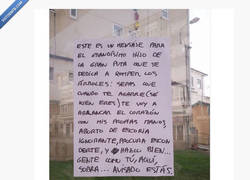 ESTE ES UN MENSAJE PARA
EL GRANDÍSIMO HIJO DE
LA GRAN PUTA QUE SE
DEDICA A ROMPER LOS
ÁRBOLES: SEPAS QUE
CUANDO TE AGARRE (SÉ
BIEN ERES) TE VOY A
ARRANCAR EL CORAZÓN
CON MIS PROPIAS MANOS,
ABORTO DE ESCORIA
IGNORANTE, PROCURA ESCON
DERTE, Y HAZLO BIEN...
GENTE COMO TÚ, AQUÍ,
SOBRA... AVISADO ESTÁS.